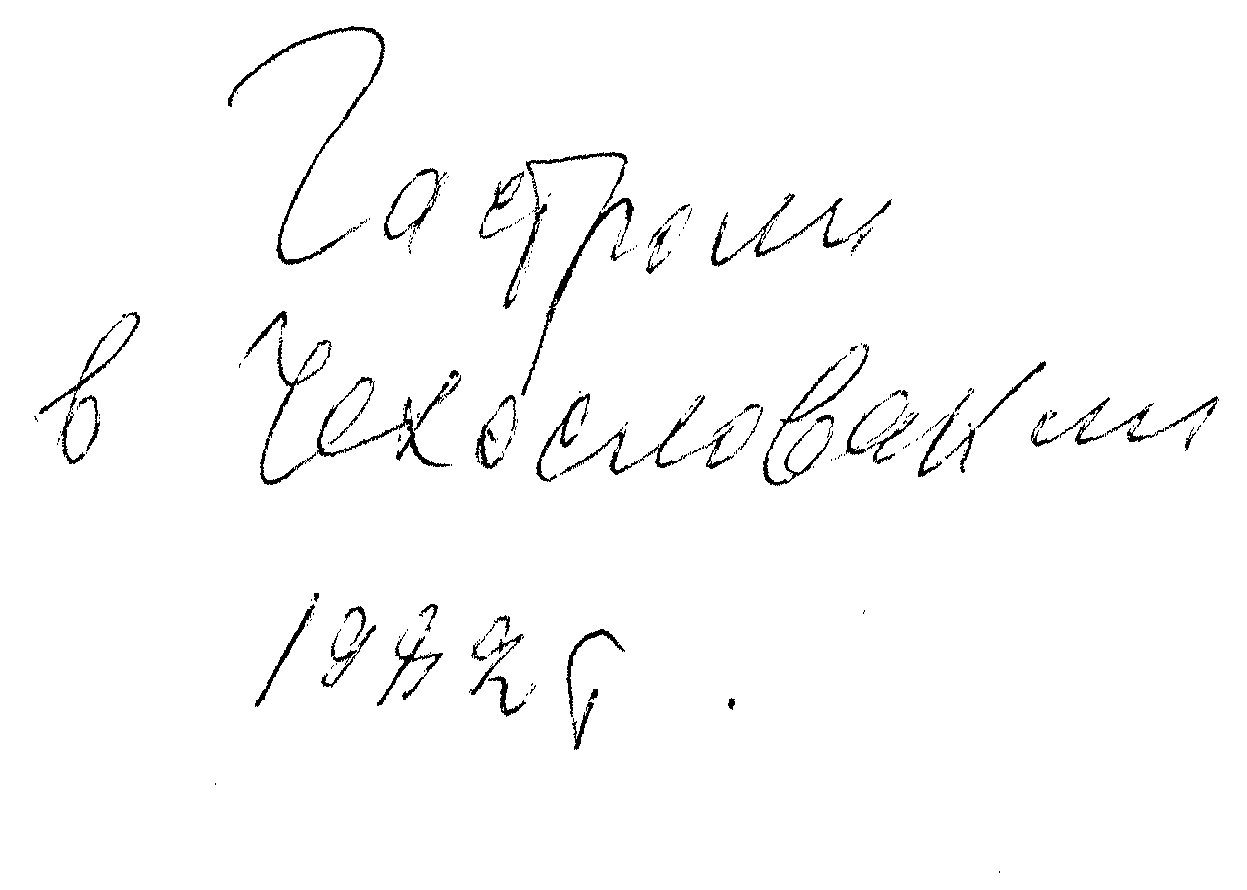 Гастроли
в Чехословакии
1982г.